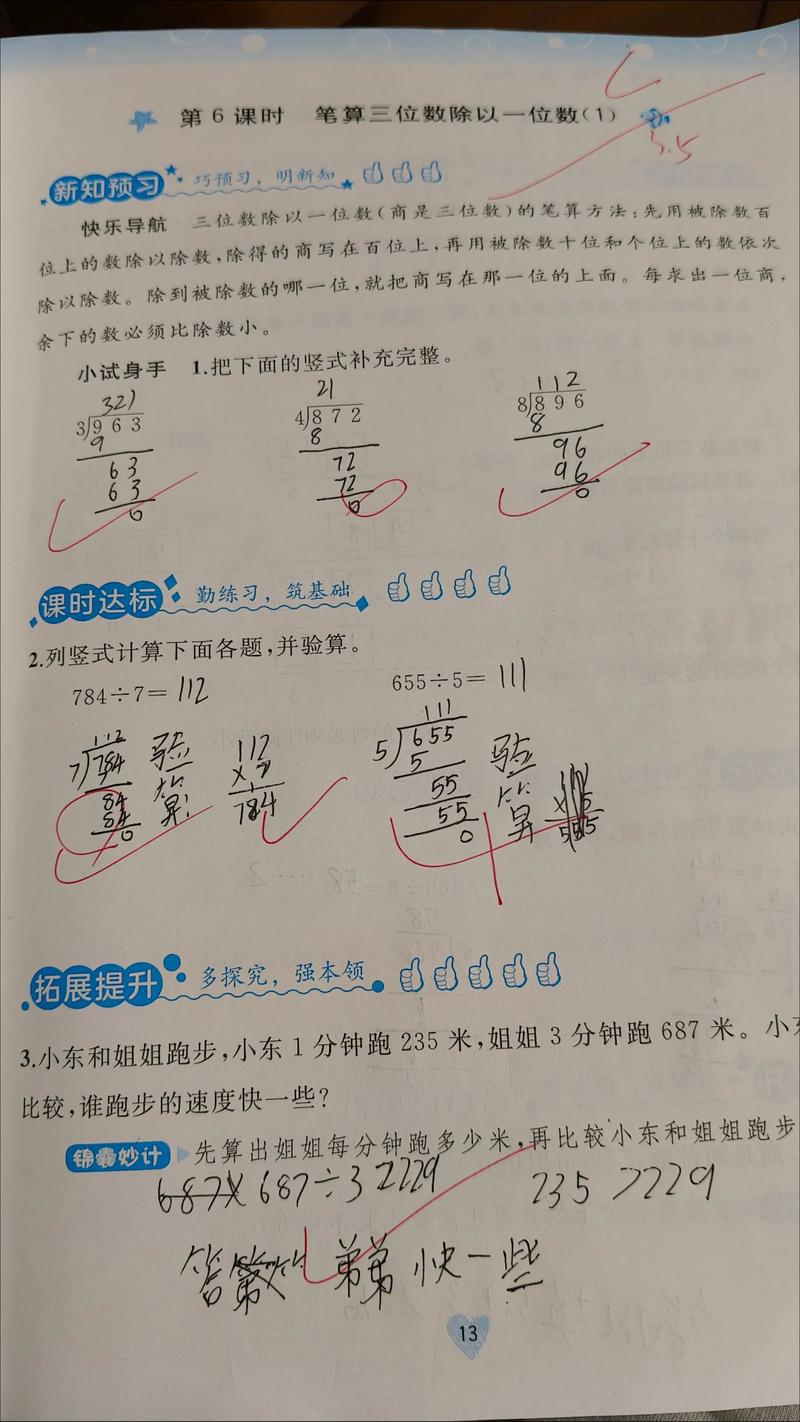 第6课时 笔算三位数除以一位数(1)
3.5
新知预习 巧预习,明新知
快乐导航 三位数除以一位数(商是三位数)的笔算方法:先用被除数百
位上的数除以除数,除得的商写在百位上,再用被除数十位和个位上的数依次
除以除数。除到被除数的哪一位,就把商写在那一位的上面。每求出一位商,
余下的数必须比除数小。
小试身手 1.把下面的竖式补充完整。
321 21 112
3 963 4 872 8 896
9 8 8
63 72 96
63 72 96
0 0 0
课时达标 勤练习,筑基础
2.列竖式计算下面各题,并验算。
784÷7=112 655÷5=111
112 111
7 784 验 112 5 655 验
算: ×7 5 算
84 784 55
84 55
0 0
拓展提升 多探究,强本领
3.小东和姐姐跑步,小东1分钟跑235米,姐姐3分钟跑687米。小
比较,谁跑步的速度快一些?
锦囊妙计 先算出姐姐每分钟跑多少米,再比较小东和姐姐跑步
687× 687÷3=229 235>229
答 弟弟快一些
13